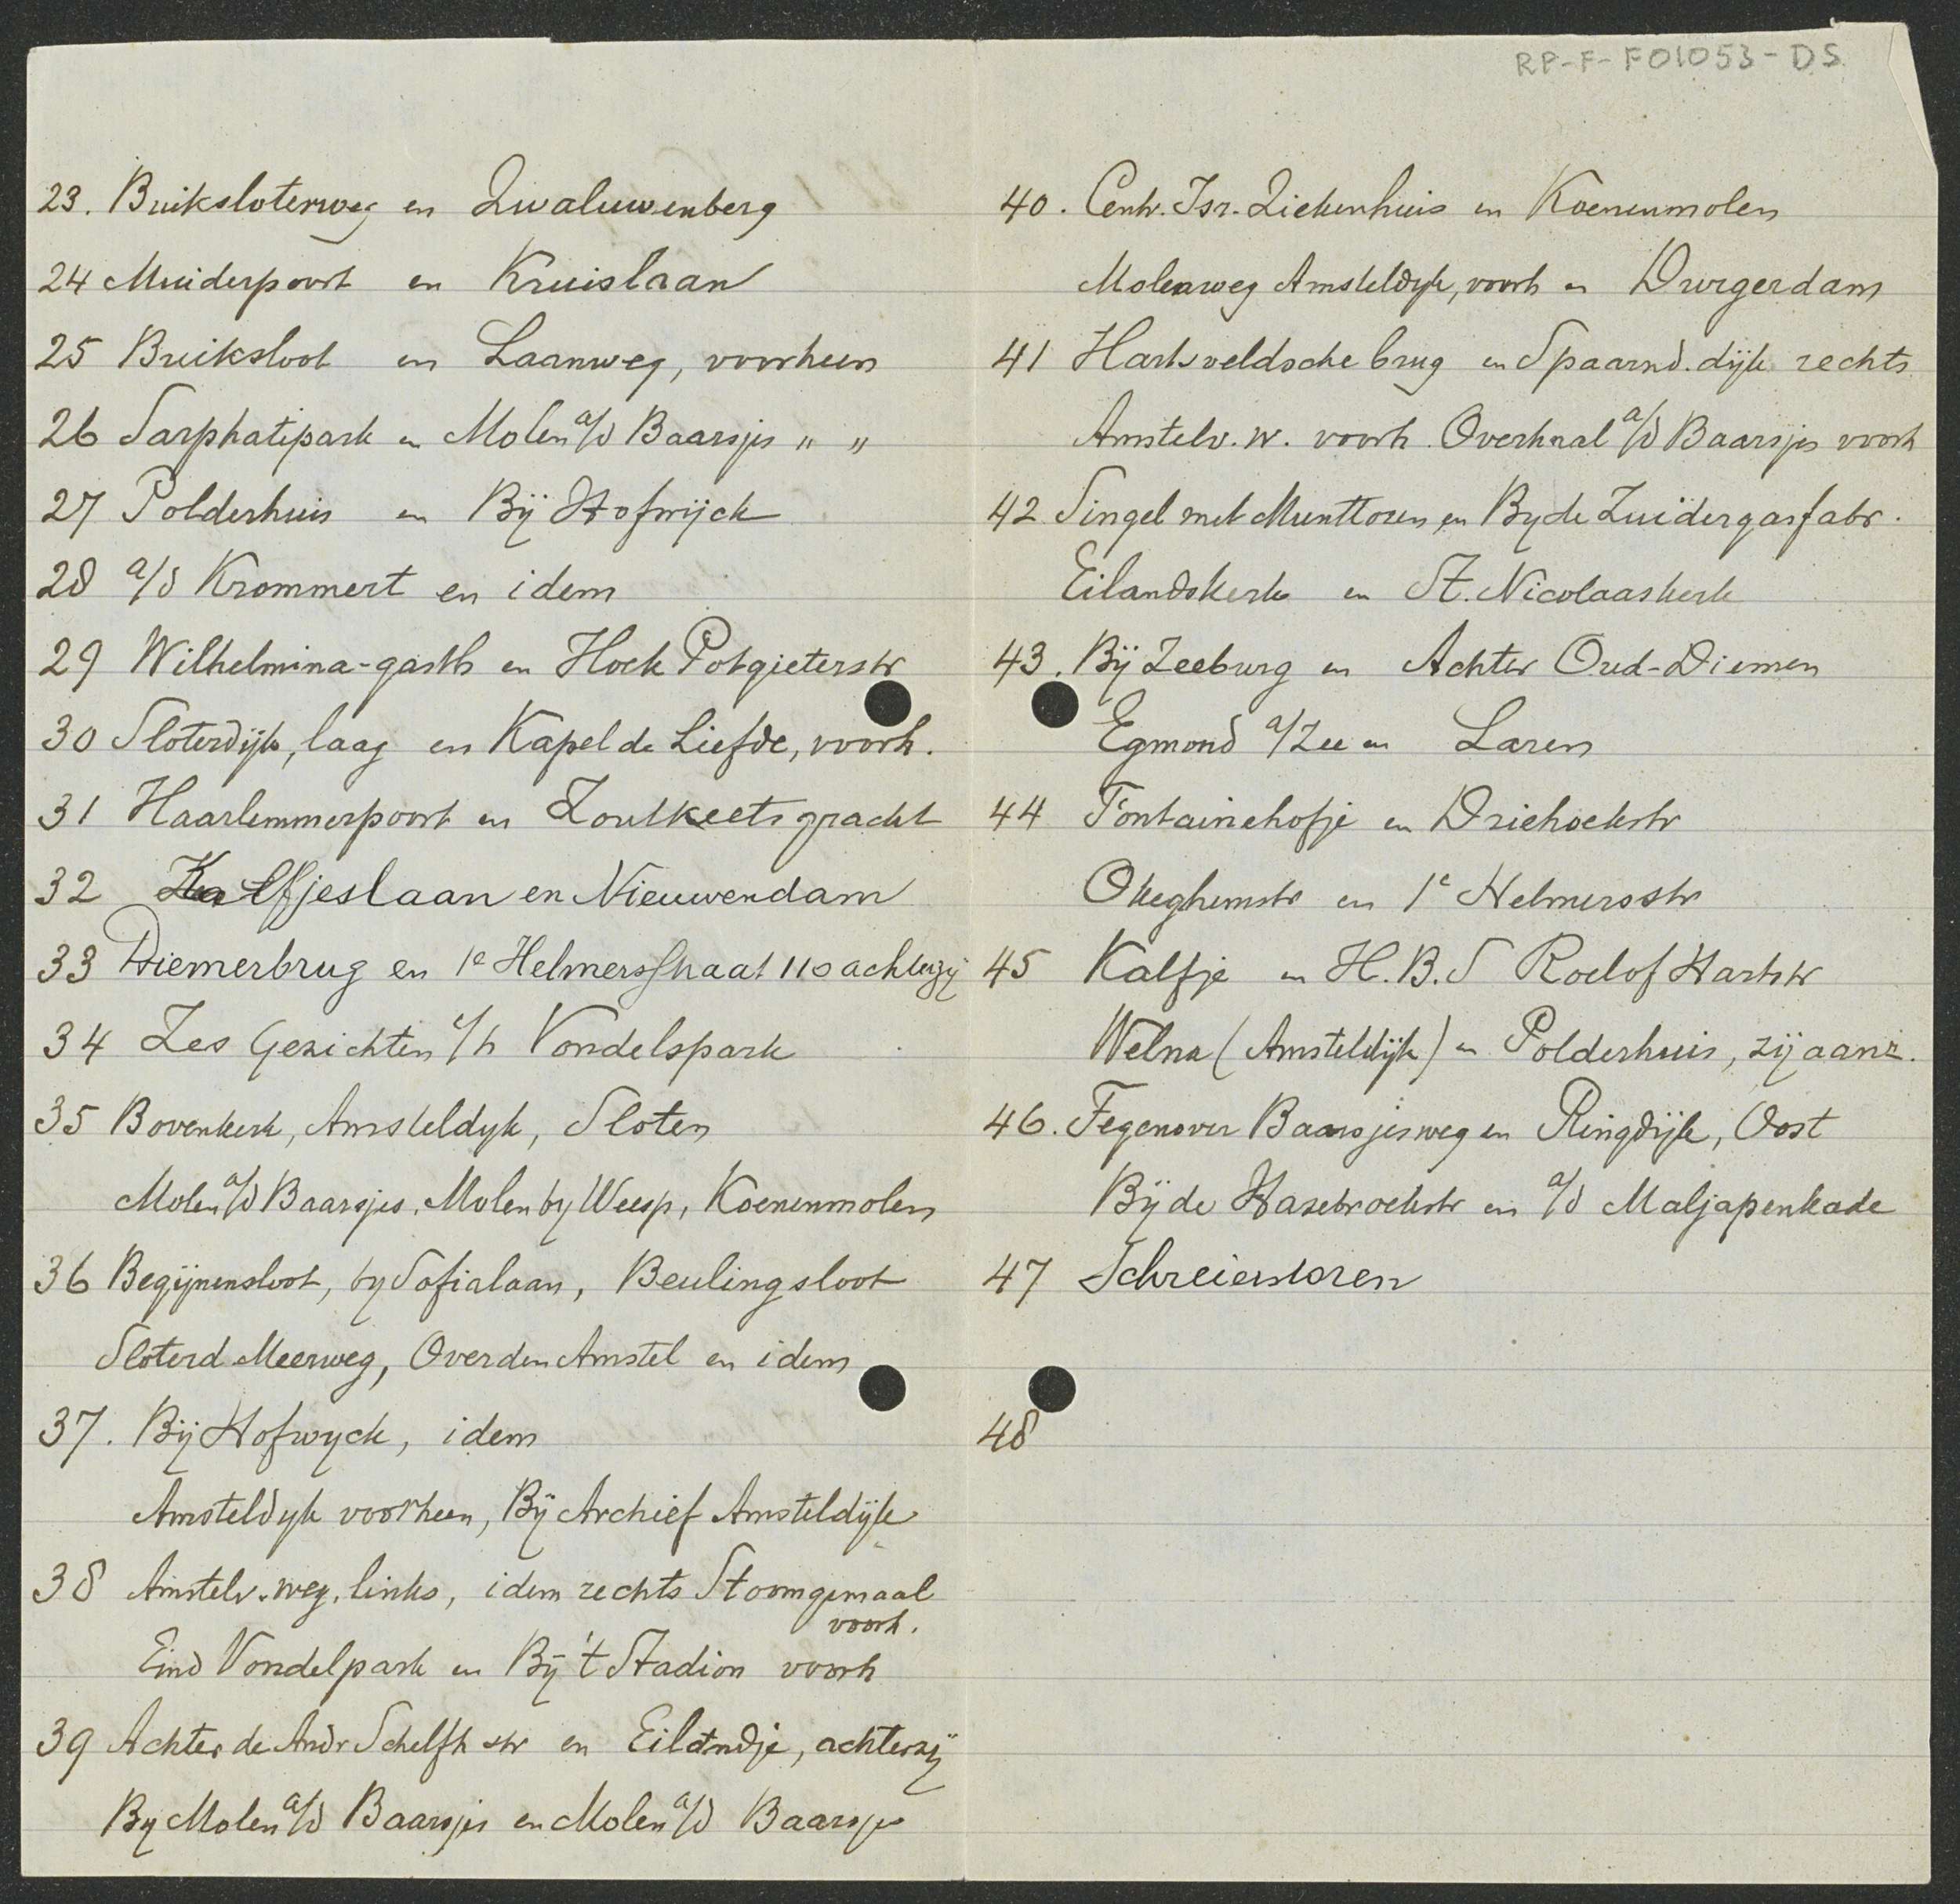 RP-F-F01053-DS
23. Buiksloterweg en Zwaluwenberg
24 Muiderpoort en Kruislaan
25 Buiksloot en Laanweg, voorheen
26 Sarphatipark en Molen a/d Baarsjes " "
27 Polderhuis en Bij Hofwijck
28 a/d Krommert en idem
29 Wilhelmina-gasth en Hoek Potgieterstr
30 Sloterdijk, laag en Kapel de Liefde, voorh.
31 Haarlemmerpoort en Zoutkeetsgracht
32 Kalfjeslaan en Nieuwendam
33 Diemerbrug en 1e Helmersstraat 110 achterzij
34 Zes Gezichten i/h Vondelspark
35 Bovenkerk, Amsteldyk, Sloten
Molen a/d Baarsjes, Molen by Weesp, Koenenmolen
36 Begijnensloot, by Sofialaan, Beulingsloot
Sloterd Meerweg, Over den Amstel en idem
37. Bij Hofwyck, idem
Amsteldyk voorheen, Bij Archief Amsteldijk
38 Amstelv. weg, links, idem rechts Stoomgemaal
voorh.
Eind Vondelpark en Bij 't Stadion voorh
39 Achter de Andr Schelfh str en Eilandje, achterzij
By Molen a/d Baarsjes en Molen a/d Baarsjes
40. Centr. Isr. Ziekenhuis en Koenenmolen
Molenweg Amsteldyk, voorh en Durgerdam
41 Hartsveldsche brug en Spaarnd. dijk rechts
Amstelv. w. voorh Overhaal a/d Baarsjes voorh
42 Singel met Munttoren en By de Zuidergasfabr.
Eilandskerk en St. Nicolaaskerk
43. Bij Zeeburg en Achter Oud-Diemen
Egmond a/Zee en Laren
44 Fontainehofje en Driehoekstr
Okeghemstr en 1e Helmersstr
45 Kalfje en H.B.S Roelof Hartstr
Welna (Amsteldijk) en Polderhuis, zijaanz.
46. Tegenover Baarsjesweg en Ringdijk, Oost
Bij de Hasebroekstr en a/d Maljapenkade
47 Schreierstoren
48